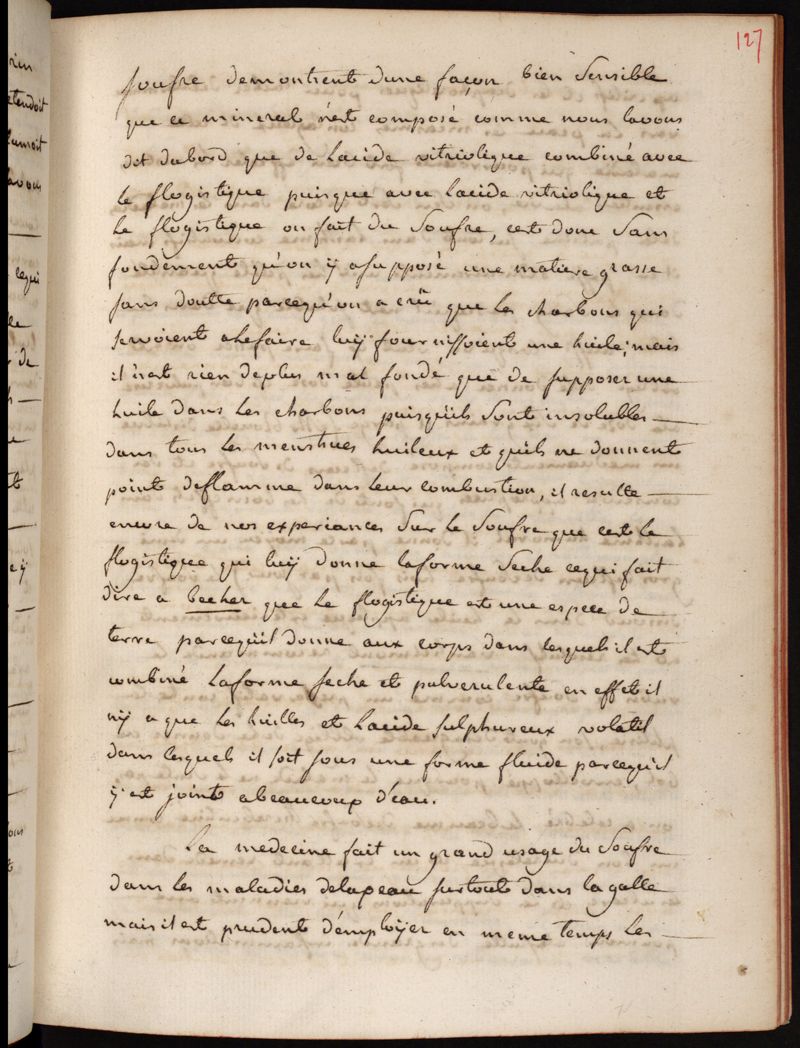 127
soufre demontrent dune façon bien sensible
que ce mineral n'est composé comme nous lavons
dit dabord que de lacide vitriolique combiné avec
le flogistique puisque avec lacide vitriolique et
le flogistique on fait du soufre, cest donc sans
fondement qu'on y a supposé une matiere grasse
sans doutte parcequ'on a crû que les charbons qui
servoient a le faire luÿ fournissoient une huile; mais
il n'est rien de plus mal fondé que de supposer une
huile dans les charbons puisqu'ils sont insolubles
dans tous les menstrues huileux et qu'ils ne donnent
point de flamme dans leur combustion, il resulte
encore de nos experiances sur le soufre que cest le
flogistique qui luÿ donne la forme seche ce qui fait
dire a becher que le flogistique est une espece de
terre parcequ'il donne aux corps dans lesquels il est
combiné la forme seche et pulverulente en effet il
n'ÿ a que les huilles et lacide sulphureux volatil
dans lesquels il soit sous une forme fluide parcequ'il
ÿ est joint a beaucoup d'eau.
La medecine fait un grand usage du soufre
dans les maladies de la peau surtout dans la galle
mais il est prudent d'emploÿer en meme temps les
rien
etendoit
lavons
cequi
de